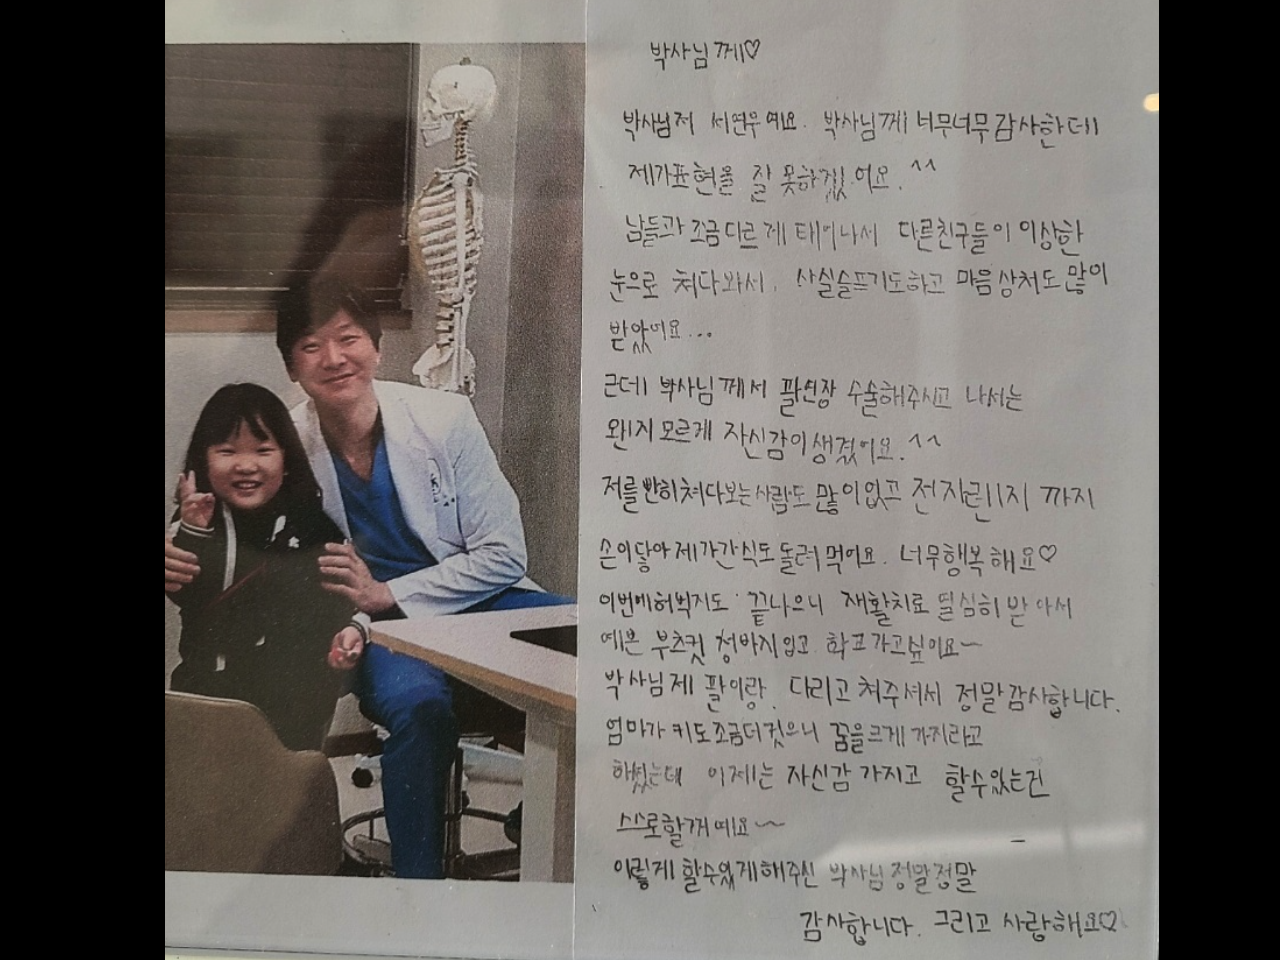 박사님께♡
박사님저 서연우예요. 박사님께 너무너무감사한데
제가표현을 잘 못하겠어요.^^
남들과 조금다르게 태어나서 다른친구들이 이상한
눈으로 쳐다봐서. 사실슬프기도하고 마음상처도많이
받았어요...
근데 박사님께서 팔연장 수술해주시고 나서는
왠지모르게 자신감이생겼어요.^^
저를빤히쳐다보는사람도 많이없고 전자렌지 까지
손이닿아제가간식도돌려먹어요. 너무행복해요♡
이번에허벅지도 끝나으니 재활치료 열심히받아서
예쁜 부츠컷 청바지입고 학교가고싶어요~
박사님제 팔이랑. 다리고쳐주셔서 정말감사합니다.
엄마가 키도조금더컷으니 꿈을크게가지라고
하셨는데 이제는 자신감가지고 할수있는건
스스로할꺼예요~
이렇게 할수있게해주신 박사님정말정말
감사합니다. 그리고 사랑해요♡